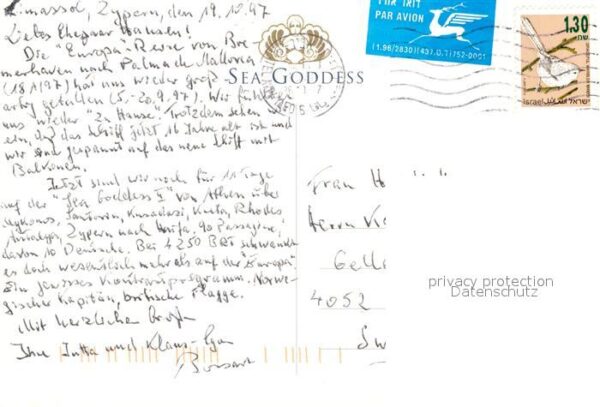 Limassol, Zypern, den 19.10.97
Liebes Ehepaar Hansen!
Die "Europa"-Reise von Bre-
merhaven nach Palma de Mallorca
(18/197) hat uns wieder groß-
artig gefallen (5.-20.9.97). Wir
uns wieder "zu Hause". Trotzdem sehen wir
ein, daß das Schiff jetzt 16 Jahre alt ist und
wir sind gespannt auf das neue Schiff mit
Balkonen.
Jetzt sind wir noch für 11 Tage
auf der "Sea Goddess I" von Athen über
Mykonos, Santorin, Kusadasi, Kreta, Rhodos
Antalya, Zypern nach Haifa. 90 Passagiere,
davon 10 Deutsche. Bei 4250 BRT schwankt
es doch wesentlich mehr als auf der "Europa"
Ein gewisses Kontrastprogramm. Norwe-
gischer Kapitän, britische Flagge.
Mit herzlichen
Ihre Jutta und Klaus-
SEA GODDESS
PAR AVION
(1.96/2830)(437.0.1)752-0001
1.30
Israel ישראל
Frau H
Herrn K
Gelle
4052
Sw
privacy protection
Datenschutz